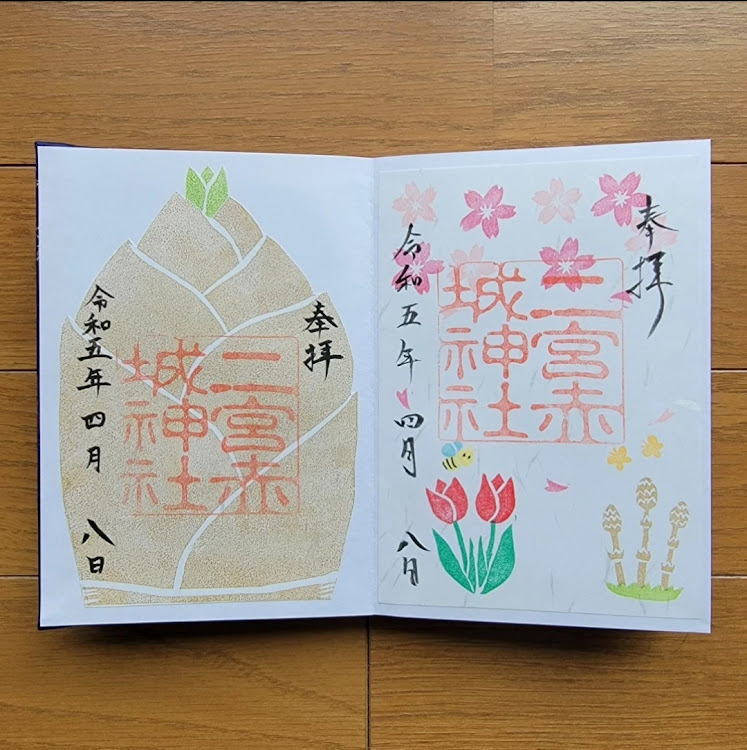 奉拝
二宮赤
城神社
令和五年四月八日
奉拝
二宮赤
城神社
令和五年四月八日